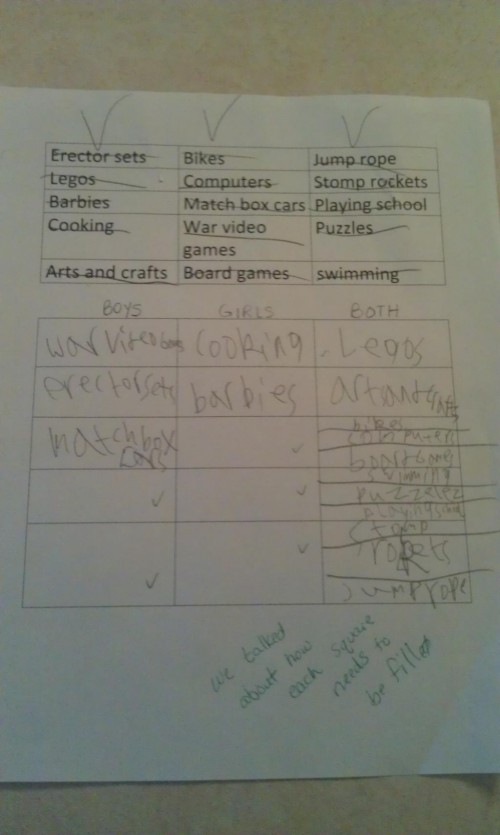 Erector sets Bikes Jump rope
Legos Computers Stomp rockets
Barbies Match box cars Playing school
Cooking War video Puzzles
games
Arts and crafts Board games swimming
BOYS GIRLS BOTH
war viteo games cooking Legos
erector sets barbies
matchbox
cars
bikes
computers
boartgames
swimming
puzzelez
stomp
rokets
jumprope
we talked
about how
each square
needs to
be filled